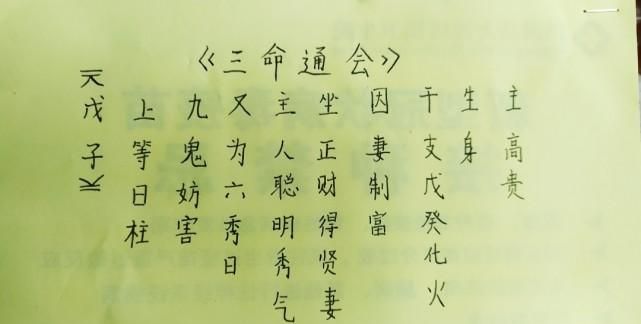 《三命通会》
《戊子》
上等日柱
九鬼妨害
又为六秀日
主人聪明秀气
坐正财得贤妻
因妻制富
干支戊癸化火
生身
主高贵